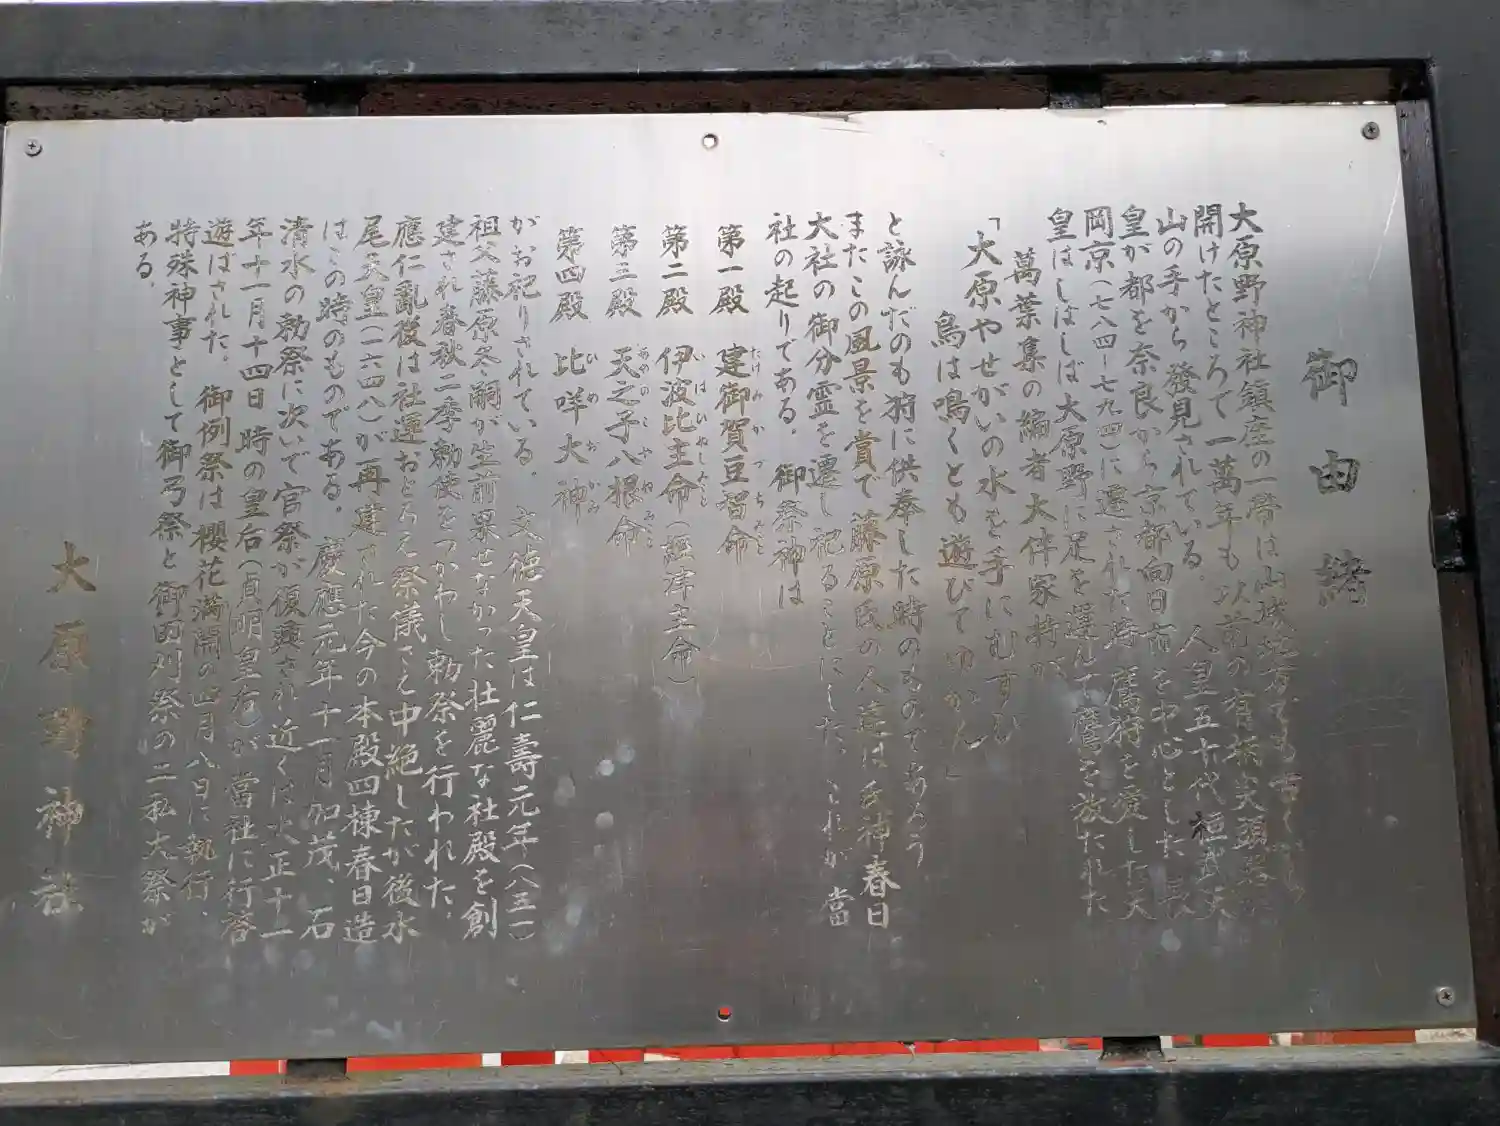 御由緒
大原野神社鎮座の一帯は山城地方でも古く
開けたところで一萬年も以前の有柄尖頭器が
山の手から發見されている。人皇五十代桓武天
皇が都を奈良から京都向日市を中心とした長
岡京(七八四―七九四)に遷された時、鷹狩を愛した天
皇はしばしば大原野に足を運んで鷹を放たれた
萬葉集の編者大伴家持が
「大原やせがいの水を手にむすび
鳥は鳴くとも遊びてゆかん」
と詠んだのも狩に供奉した時のものであろう
またこの風景を賞で藤原氏の人達は氏神春日
大社の御分霊を遷し祀ることにした。これが當
社の起りである。御祭神は
第一殿 建御賀豆智命
第二殿 伊波比主命(經津主命)
第三殿 天之子八根命
第四殿 比咩大神
がお祀りされている。文徳天皇は仁壽元年(八五一)
祖父藤原冬嗣が生前果せなかった壮麗な社殿を創
建され春秋二季勅使をつかわし勅祭を行われた。
應仁亂後は社運おとろえ祭儀さえ中絶したが後水
尾天皇(一六四八)が再建された今の本殿四棟春日造
はこの時のものである。慶應元年十一月加茂、石
清水の勅祭に次いで官祭が復興され近くは大正十一
年十一月十四日時の皇后(貞明皇后)が當社に行啓
遊ばされた。御例祭は櫻花満開の四月八日に執行、
特殊神事として御弓祭と御田刈祭の二私大祭が
ある。
大原野神社